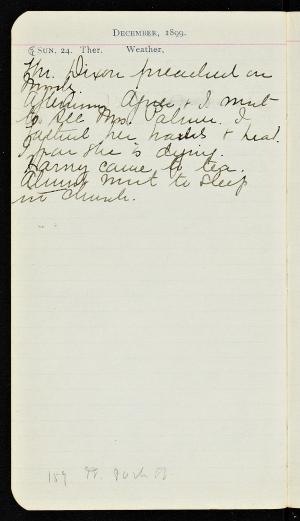 DECEMBER, 1899.
SUN. 24. Ther. Weather.
Mr. Dixon preached on
Afternoon Agnes & I went
to see Mrs. Palmer. I
bathed her hands & head.
I fear she is dying.
Harry came to tea.
went to sleep
in church.
189